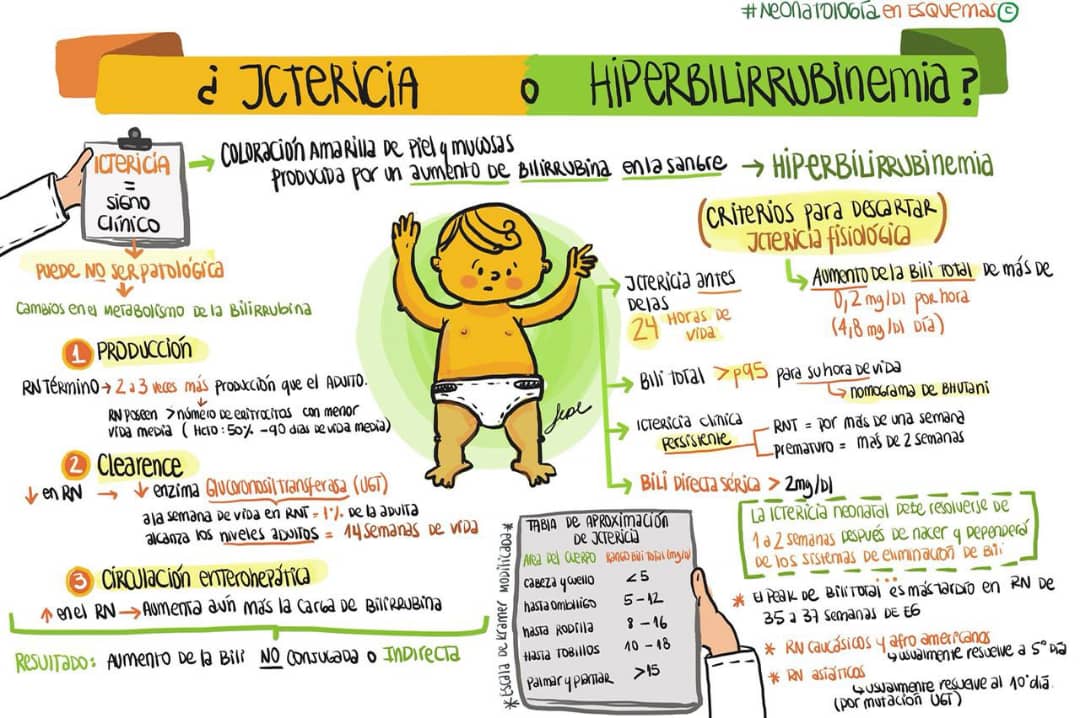 #Neonatología en Esquemas ©
¿ ICTERICIA o HIPERBILIRRUBINEMIA?
ICTERICIA
=
SIGNO
CLÍNICO
→ COLORACIÓN AMARILLA DE PIEL y MUCOSAS
PRODUCIDA POR UN AUMENTO DE BILIRRUBINA EN LA SANGRE → HIPERBILIRRUBINEMIA
PUEDE NO SER PATOLÓGICA
Cambios en el METABOLISMO DE la BILIRRUBINA
1 PRODUCCIÓN
RN TÉRMINO → 2 a 3 veces más PRODUCCIÓN que el ADULTO.
RN POSEEN > número de eritrocitos con menor
vida media ( Hcto : 50% - 90 días de vida media)
2 Clearence
↓ en RN → ↓ enzima Glucoronosil transferasa (UGT)
a la semana de vida en RNT = 1% de la adulta
alcanza los niveles adultos = 14 semanas de vida
3 CIRCULACIÓN enterohepática
↑ en el RN → Aumenta aún más la carga de BILIRRUBINA
Resultado: Aumento de la Bili NO conjugada o Indirecta
(CRITERIOS para DESCARTAR
ICTERICIA fisiológica)
Aumento de la Bili Total de más de
0,2 mg/Dl por hora
(4,8 mg/Dl Día)
ICTERICIA antes
de las
24 Horas de
vida
Bili total >p95 para su hora de vida
nomograma de Bhutani
ICTERICIA clínica
Persistente
RNT = por más de una semana
prematuro = más de 2 semanas
Bili Directa Sérica > 2mg/Dl
La ICTERICIA neonatal debe resolverse de
1 a 2 semanas después de nacer y dependerá
de los sistemas de eliminación de Bili
* El Peak de Bili total es más tardío en RN de
35 a 37 semanas de EG
* RN caucásicos y afro americanos
usualmente resuelve a 5° Día
* RN asiáticos
usualmente resuelve al 10° día.
(por mutación UGT)
*Escala de Kramer Modificada*
TABLA DE APROXIMACIÓN
DE ICTERICIA
Area del cuerpo Rango Bili total (mg/dl)
cabeza y cuello <5
hasta ombligo 5 - 12
hasta Rodilla 8 - 16
Hasta Tobillos 10 - 18
Palmar y plantar >15